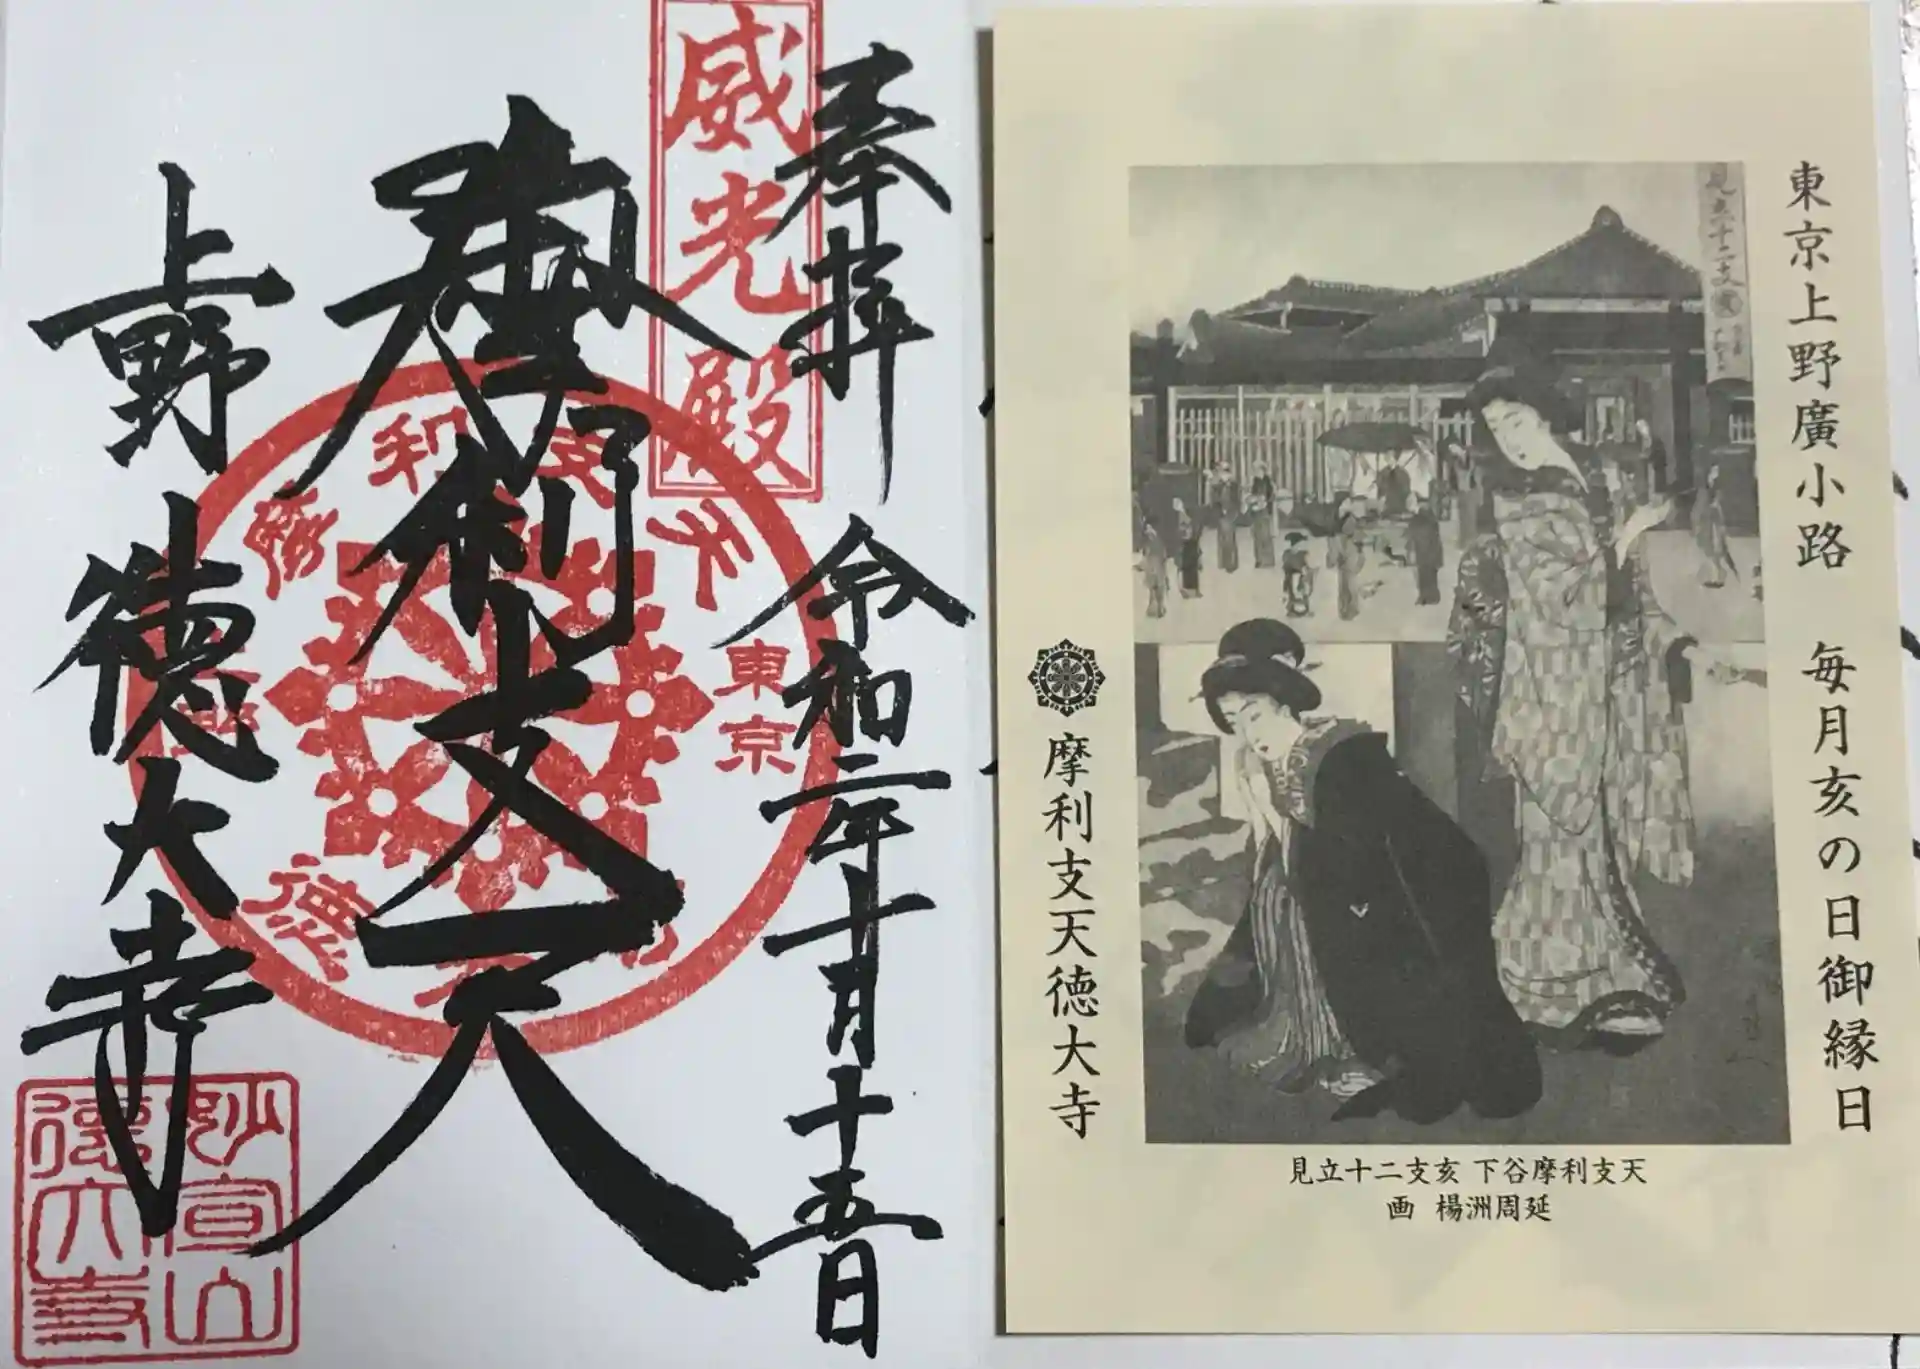 奉拝 令和二年十月十五日
威光殿
摩利支天
上野 徳大寺
東京
摩利支天
妙宣山
徳大寺
東京上野廣小路 毎月亥の日御縁日
見立十二支
摩利支天徳大寺
見立十二支亥 下谷摩利支天
画 楊洲周延